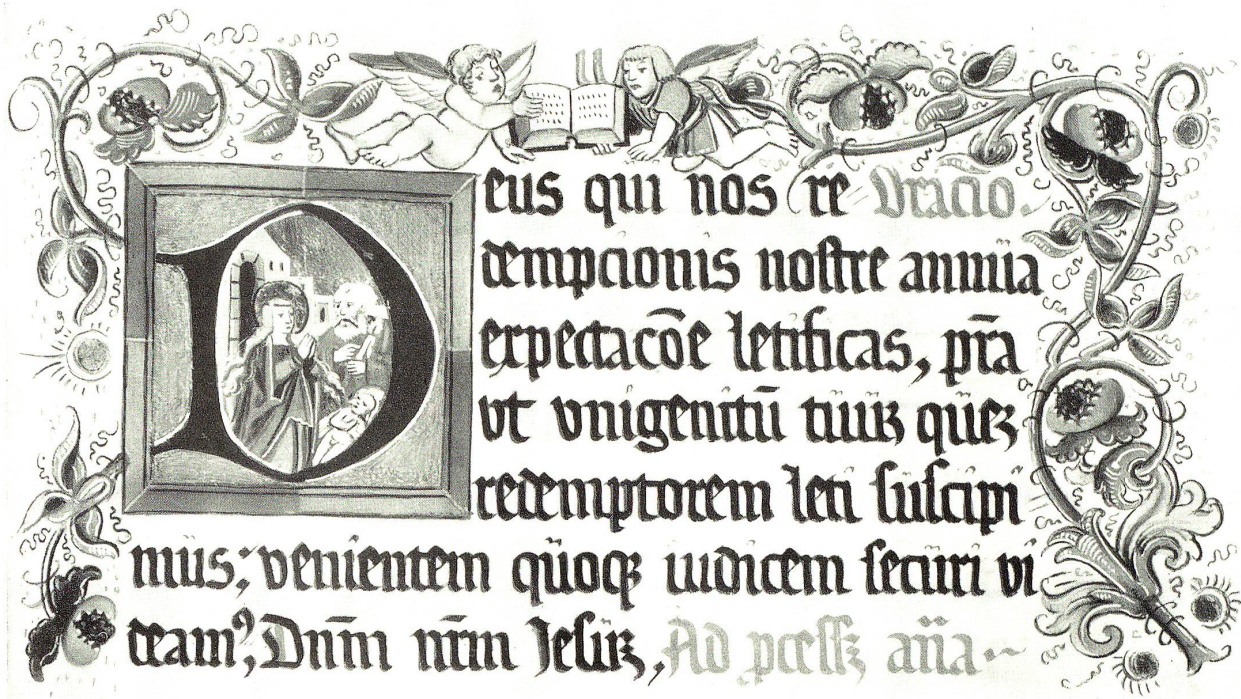 Deus qui nos re Oracio.
dempcionis nostre annua
expectacōe letificas, p̄ta
vt vnigenitū tuuꝫ queꝫ
redemptorem leti suscipi
mus; venientem quoqꝫ iudicem securi vi
deamꝰ, Dn̄m nr̄m Jesuꝫ, Ad p̱cessꝫ an̄a